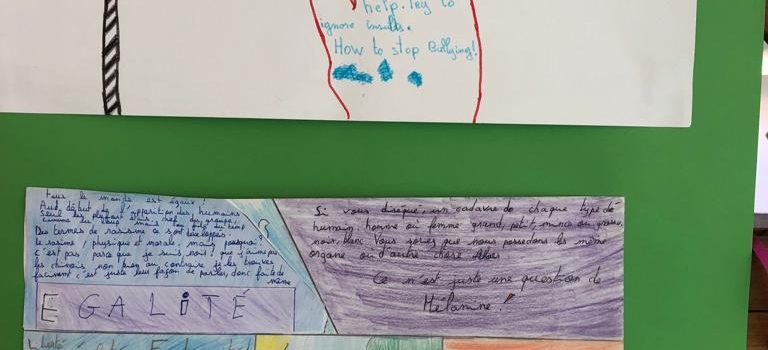 help. Try to
ignore insults.
How to stop Bullying!
tous le monde est égaux !
Au début de l'apparition des humains
Des termes de racisme ce sont développés.
le racisme physique et morale, mais pourquoi ?
c'est pas parce que je suis noir que j'aime pas
les chinois, non bien au contraire je les trouves
c'est juste leur façon de parler, donc faite de
même
EGALiTÉ
Si vous diséquer, un cadavre de chaque type de
humain homme ou femme grand, petit, mince ou grosse,
noir, blanc Vous verrez que nous possedons les même
organe ou d'autre chose
Ce n'est juste une question de
Mélamine !